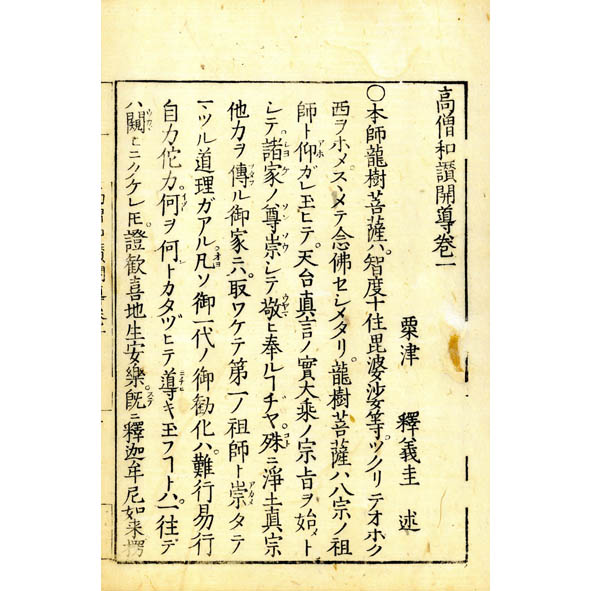 高僧和讃開導巻一
粟津 釋義圭 述
〇本師龍樹菩薩ハ智度十住毘婆沙等ツクリテオホク
西ヲホメスヽメテ念佛セシメタリ龍樹菩薩ハ八宗ノ祖
師ト仰ガレ玉ヒテ天台真言ノ實大乘ノ宗旨ヲ始メト
シテ諸家ノ尊崇シテ敬ヒ奉ルヿヂヤ殊ニ淨土真宗
他力ヲ傳ル御家ニハ取ワケテ第一ノ祖師ト崇タテ
ツル道理ガアル凡ソ御一代ノ御勸化ハ難行易行
自力佗力何ヲ何トカタヅヒテ導キ玉フヿトハ一往デ
ハ闚ヒニクケレ𪜈證歡喜地生安樂既ニ釋迦牟尼如来楞